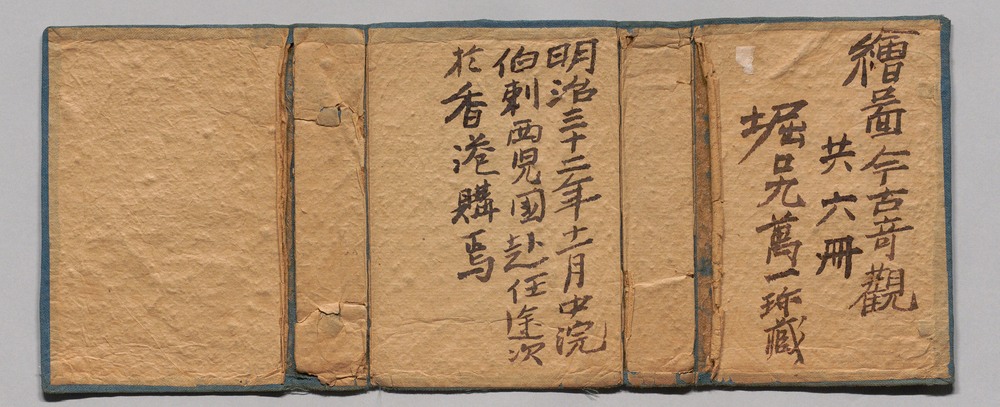 繪啚今古竒觀
共六冊
堀口九萬一珎藏
明治三十二年十一月中浣
伯剌西児国赴任途次
扵香港購焉